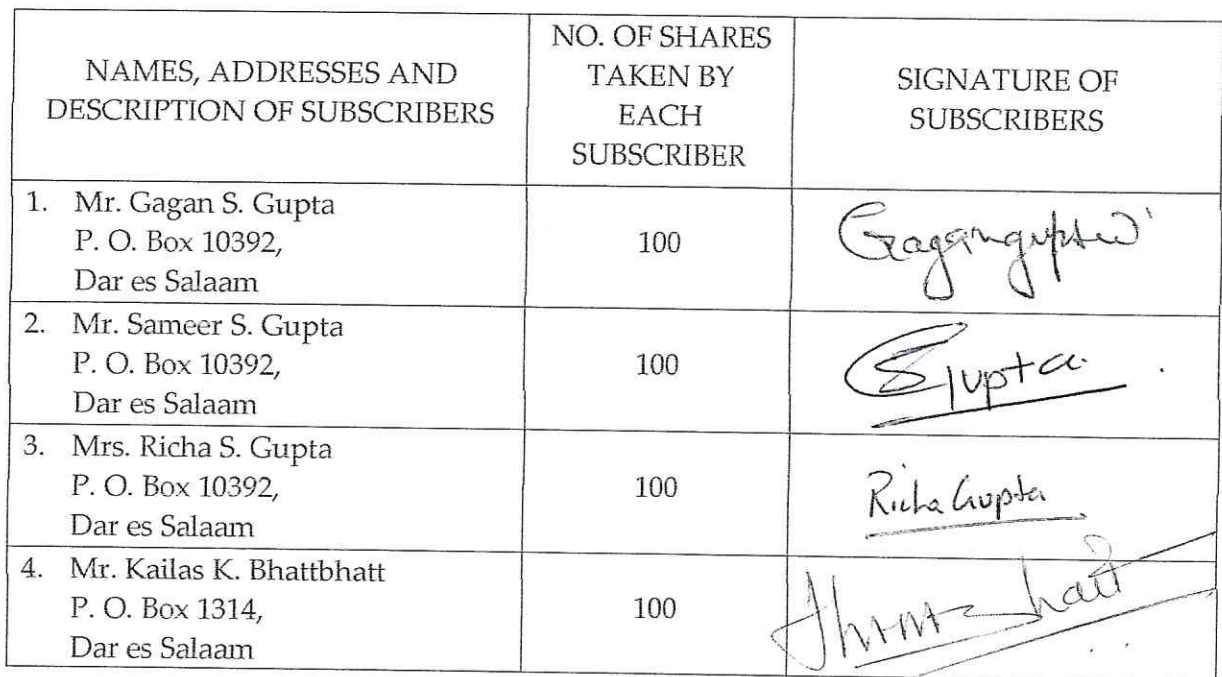 NAMES, ADDRESSES AND
DESCRIPTION OF SUBSCRIBERS
NO. OF SHARES
TAKEN BY
EACH
SUBSCRIBER
SIGNATURE OF
SUBSCRIBERS
1. Mr. Gagan S. Gupta
P. O. Box 10392,
Dar es Salaam
100
Gagangupta
2. Mr. Sameer S. Gupta
P. O. Box 10392,
Dar es Salaam
100
SGupta
3. Mrs. Richa S. Gupta
P. O. Box 10392,
Dar es Salaam
100
Richa Gupta
4. Mr. Kailas K. Bhattbhatt
P. O. Box 1314,
Dar es Salaam
100